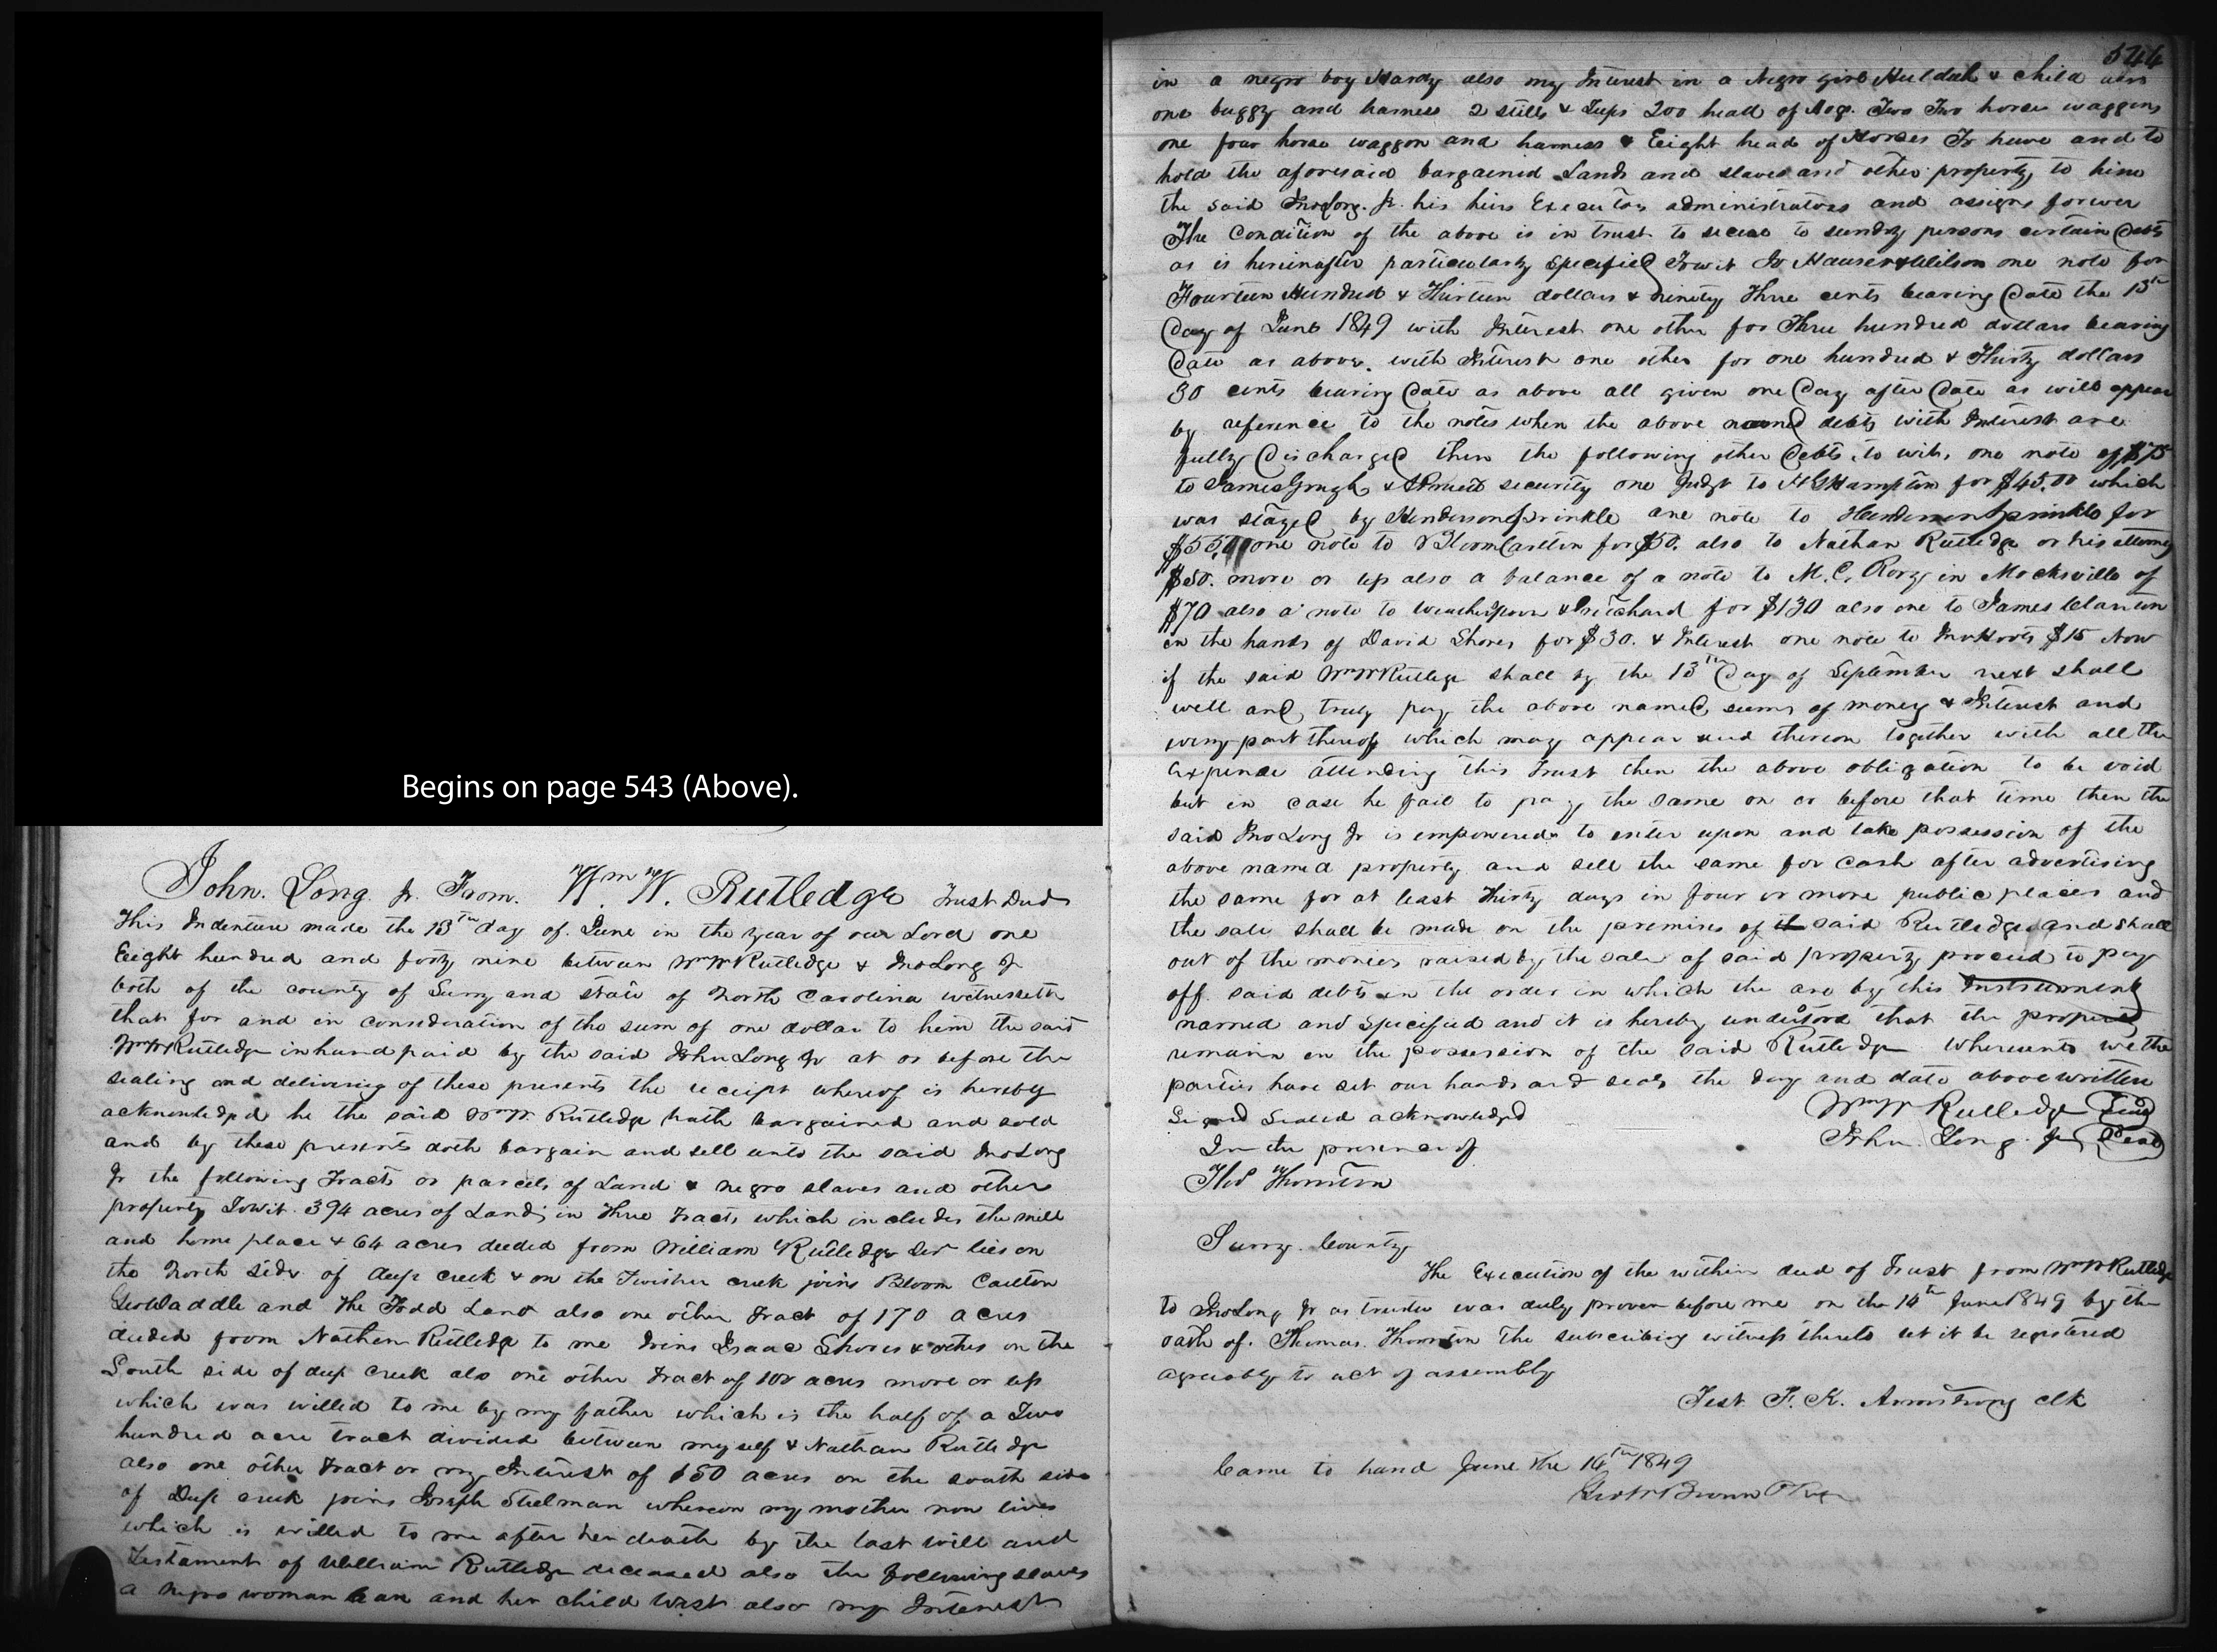 Begins on page 543 (Above).
John. Long. Jr. From. Wm W. Rutledge Trust Deed
This Indenture made the 13th day of June in the year of our Lord one
Eight hundred and forty nine between Wm W Rutledge & Jno Long Jr
both of the county of Surry and State of North Carolina witnesseth
that for and in consideration of the sum of one dollar to him the said
Wm W Rutledge in hand paid by the said John Long Jr at or before the
sealing and delivering of these presents the receipt whereof is hereby
acknowledged he the said Wm W. Rutledge hath bargained and sold
and by these presents doth bargain and sell unto the said Jno Long
Jr the following Tracts or parcels of Land & negro slaves and other
property Towit. 394 acres of Land, in Three Tracts which includes the mill
and home place & 64 acres deeded from William Rutledge Senr lies on
the North side of deep creek & on the Twisher creek joins Bloom Carlton
Geo Waddle and The Todd Land also one other Tract of 170 acres
deeded from Nathan Rutledge to me Joins Isaac Shores & others on the
South side of deep creek also one other Tract of 100 acres more or less
which was willed to me by my father which is the half of a Two
hundred acre tract divided between myself & Nathan Rutledge
also one other Tract or my Interest of 150 acres on the south side
of Deep creek joins Joseph Steelman whereon my mother now lives
which is willed to me after her death by the last will and
Testament of William Rutledge deceased also the following slaves
a negro woman and her child West also my Interest
544
in a negro boy Hardy also my Interest in a Negro girl Huldah & child also
one buggy and harness 2 stills & Tubs 200 head of Hogs. Two Two horse waggons
one four horse waggon and harness & Eight head of Horses To have and to
hold the aforesaid bargained Lands and slaves and other property to him
the said Jno Long. Jr. his heirs Executors administrators and assigns forever
The Condition of the above is in trust to secure to sundry persons certain Debts
as is hereinafter particularly specified Towit To Hauser & Wilson one note for
Fourteen Hundred & Thirteen dollars & ninety Three cents bearing Date the 13th
Day of June 1849 with Interest one other for Three hundred dollars bearing
Date as above. with Interest one other for one hundred & Thirty dollars
30 cents bearing Date as above all given one Day after Date as will appear
by reference to the notes when the above named debts with Interest are
fully Discharged then the following other Debts, to wit, one note of $75
to James Gough & security one Judgt to Hampton for $45.00 which
was stayed by Henderson Sprinkle one note to Henderson Sprinkle for
$55. one note to Bloom Carlton for $50. also to Nathan Rutledge or his attorney
$50. more or less also a balance of a note to M. C. Rory in Mocksville of
$70 also a note to Weatherspoon & Pritchard for $130 also one to James Clanton
in the hands of David Shores for $30. & Interest one note to Jno Hoots $15 Now
if the said Wm W Rutledge shall by the 13th Day of September next shall
well and truly pay the above named sums of money & Interest and
every part thereof which may appear due thereon together with all the
Expense attending this Trust then the above obligation to be void
but in case he fail to pay the same on or before that time then the
said Jno Long Jr is empowered to enter upon and take possession of the
above named property and sell the same for cash after advertising
the same for at least Thirty days in four or more public places and
the sale shall be made on the premises of said Rutledge and shall
out of the monies raised by the sale of said property proceed to pay
off said debts in the order in which the are by this Instrument
named and specified and it is hereby understood that the property
remain in the possession of the said Rutledge whereunto we the
parties have set our hands and seals the day and date above written
Signed Sealed acknowledged
Wm W Rutledge Seal
In the presence of
John Long. Jr Seal
Tho Thornton
Surry. County
The Execution of the within deed of Trust from Wm W Rutledge
To Jno Long Jr as trustee was duly proven before me on the 14th June 1849 by the
oath of. Thomas. Thornton the subscribing witness thereto let it be registered
agreeably to act of assembly
Test F. K. Armstrong clk
Came to hand June the 14th 1849
Geo W Brown P Reg